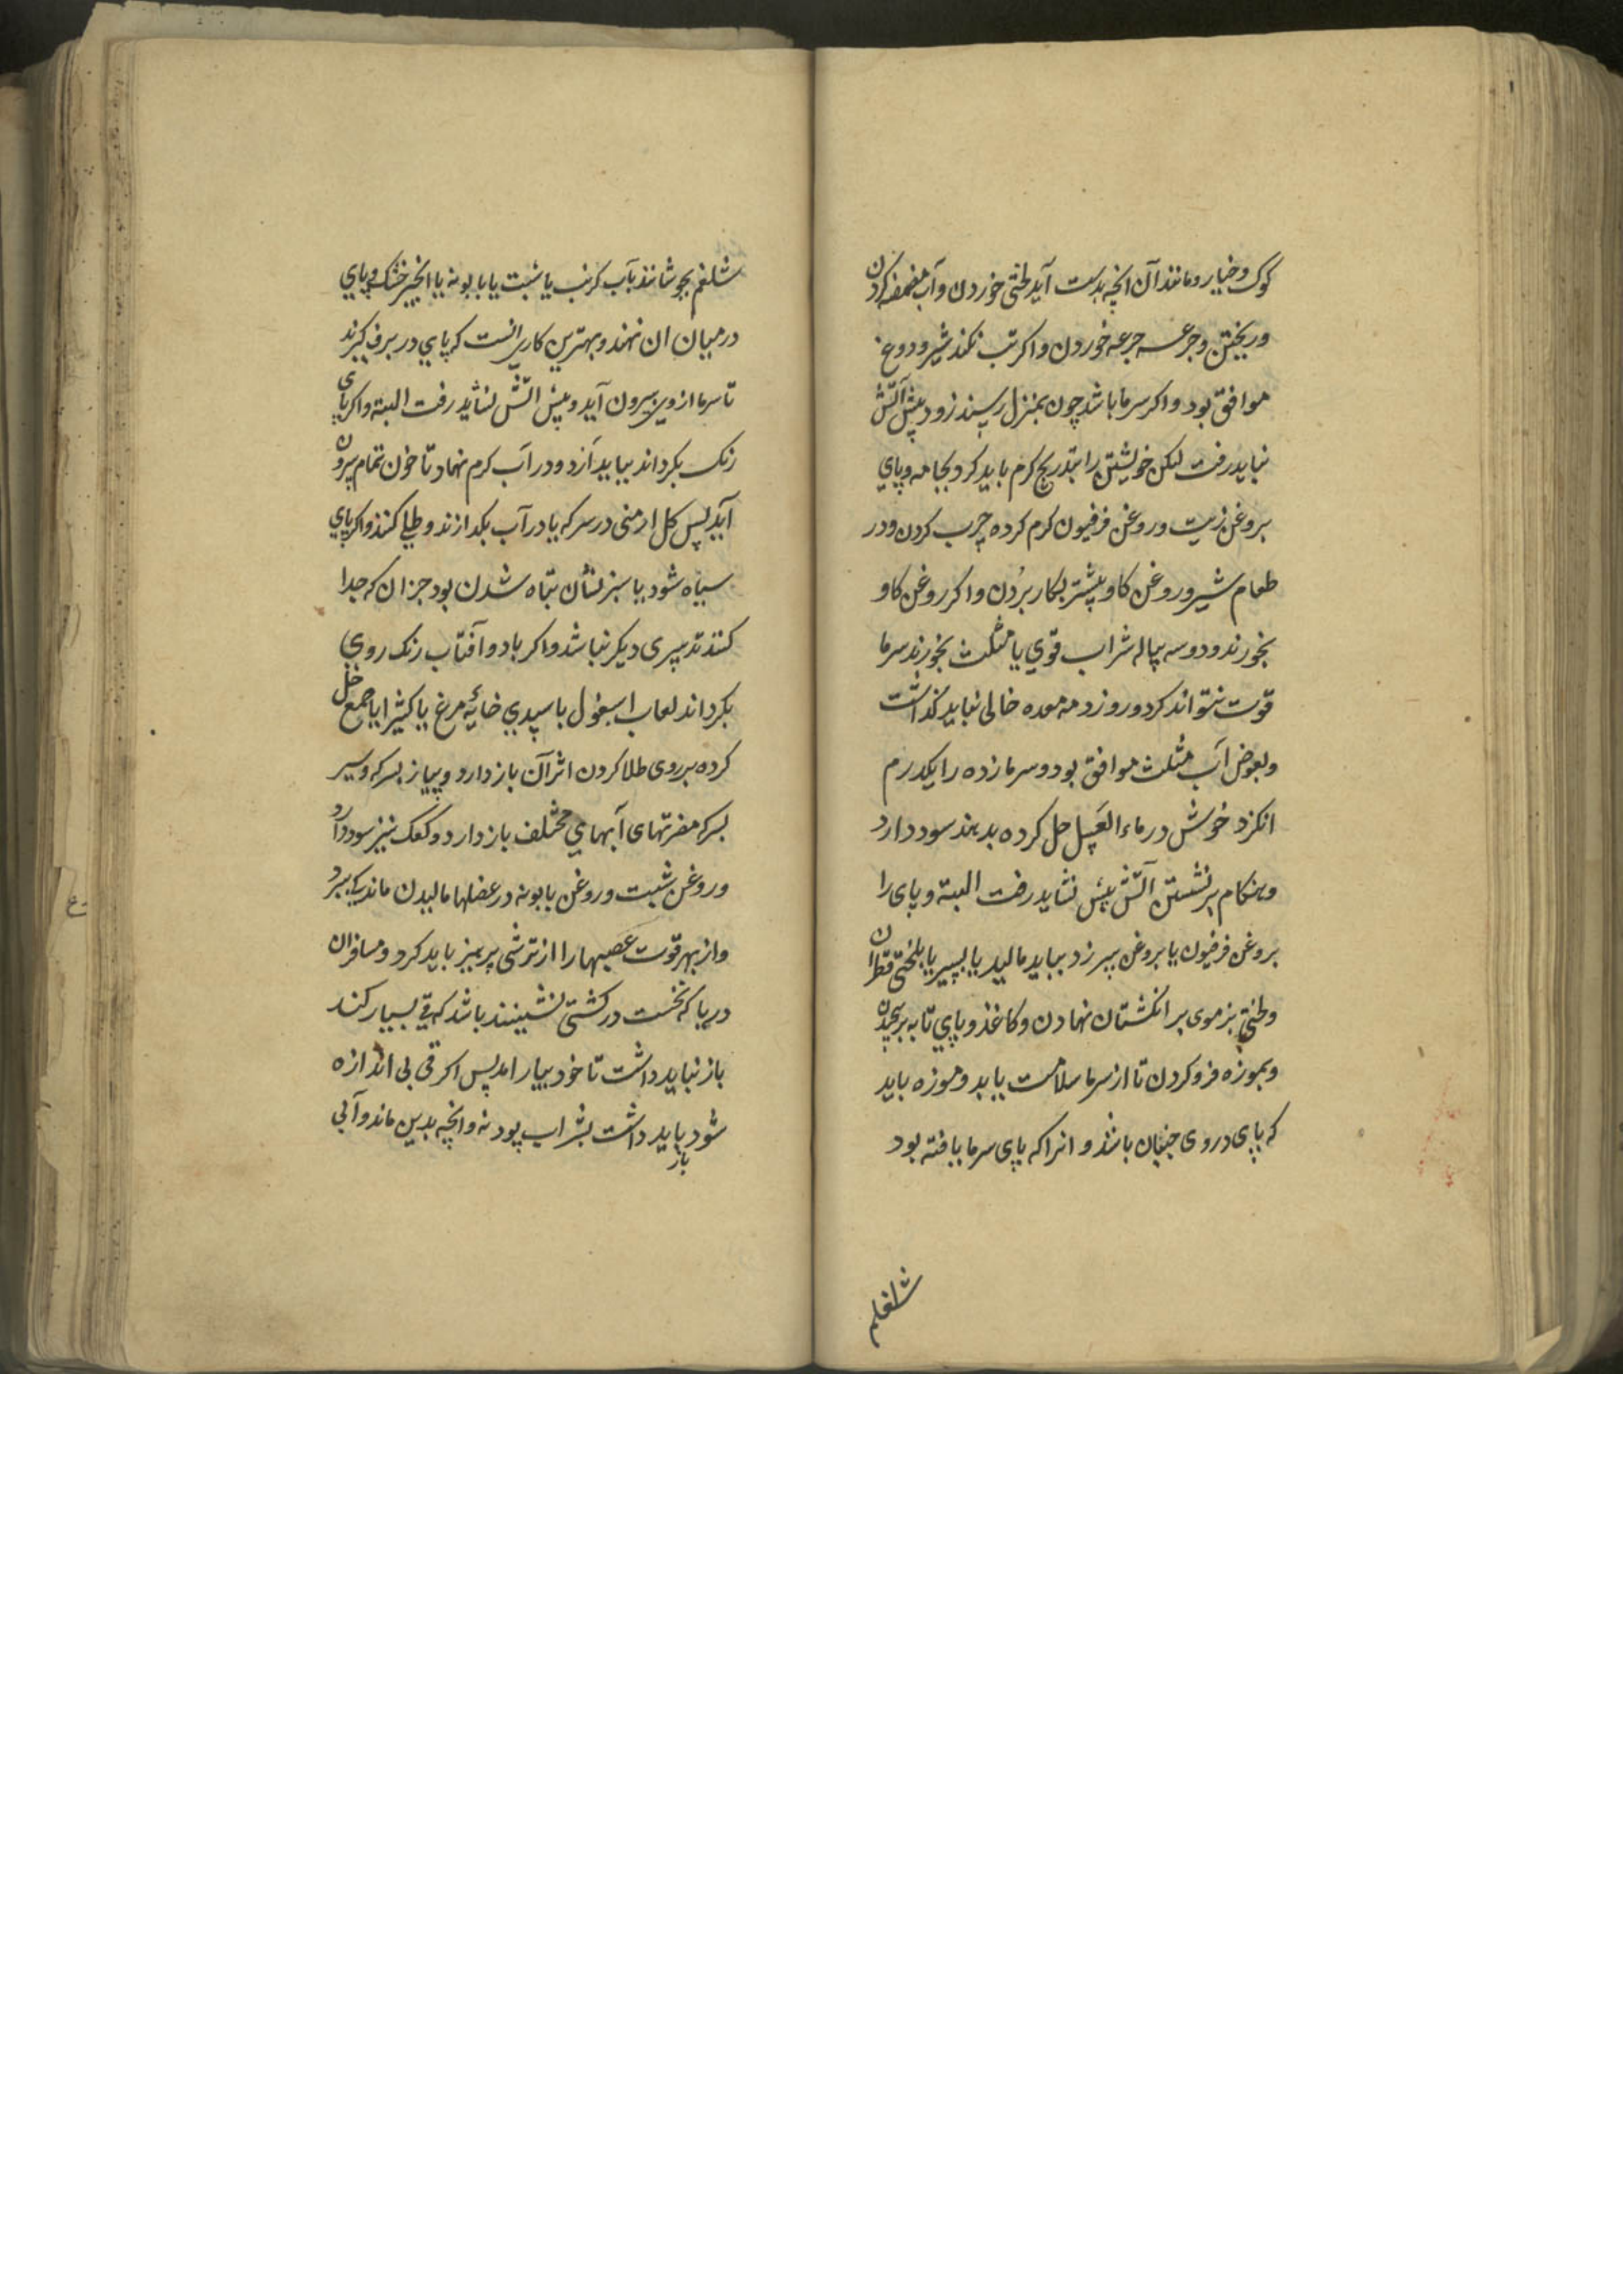 کوک وخیار ومانند آن انچه بدست آید لختی خوردن وآب مضمضه کردن
وریختن وجرعه جرعه خوردن واکر تب نکند شیر ودوغ
موافق بود واکر سرما باشد چون بمنزل رسیند زود پیش آتش
نباید رفت لیکن خویشتن را بتدریج کرم باید کرد بجامه وپاي
بروغن زیت وروغن فرفیون کرم کرده چرب کردن ودر
طعام شیر وروغن کاو بیشتر بکار بردن واکر روغن کاو
بخورند ودوسه پیاله شراب قوي یا مثلث بخورند سرما
قوت نتواند کرد وروز دمه معده خالی نباید کذاشت
وبعوض آب مثلث موافق بود وسرما زده را یکدرم
انکزد خوش درماء العسل حل کرده بدهند سود دارد
وهنکام برنشستن آتش پیش نشاید رفت البته وپای را
بروغن فرفیون یا بروغن بیرزد بباید مالید یا بسیر یا بلختی قطران
ولختی بزموی بر انکشتان نهادن وکاغذ وپاي تابه بر پیچیدن
وبموزه فرو کردن تا از سرما سلامت یابد وموزه باید
که پای در وی جنبان باشد و انرا که پای سرما یافته بود
شلغم
شلغم بجوشانند بآب کرنب یا شبت یا بابونه یا انجیر خشک وپاي
درمیان ان نهند وبهترین کاری انست که پاي در برف کیرند
تا سرما ازوی بیرون آید وپیش آتش نشاید رفت البته واکر پای
رنک بکرداند بباید آزد ودر آب کرم نهاد تا خون تمام بیرون
آید پس کل ارمنی درسرکه یا در آب بکدازند وطلي کنند واکر پاي
سیاه شود یا سبز نشان تباه شدن بود جز ان که جدا
کنند تدبیری دیکر نباشد واکر باد وآفتاب رنک روي
بکرداند لعاب اسبغول با سپیدي خائه مرغ یا کثیرا یا صمغ حل
کرده بروی طلا کردن اثر آن باز دارد وپیاز بسرکه وسیر
بسرکه مضرتهای آبهاي مختلف باز دارد وکعک نیز سود دارد
وروغن شبت وروغن بابونه در عضلها مالیدن ماندکی ببرد
واز بهر قوت عصبها را از ترشی پرهیز باید کرد ومسافران
دریا که نخست در کشتی نشینند باشد که قی بسیار کند
باز نباید داشت تا خود بیارامد پس اکر قی بی اندازه
شود باز باید داشت بشراب پودنه وانچه بدین ماند وآبی